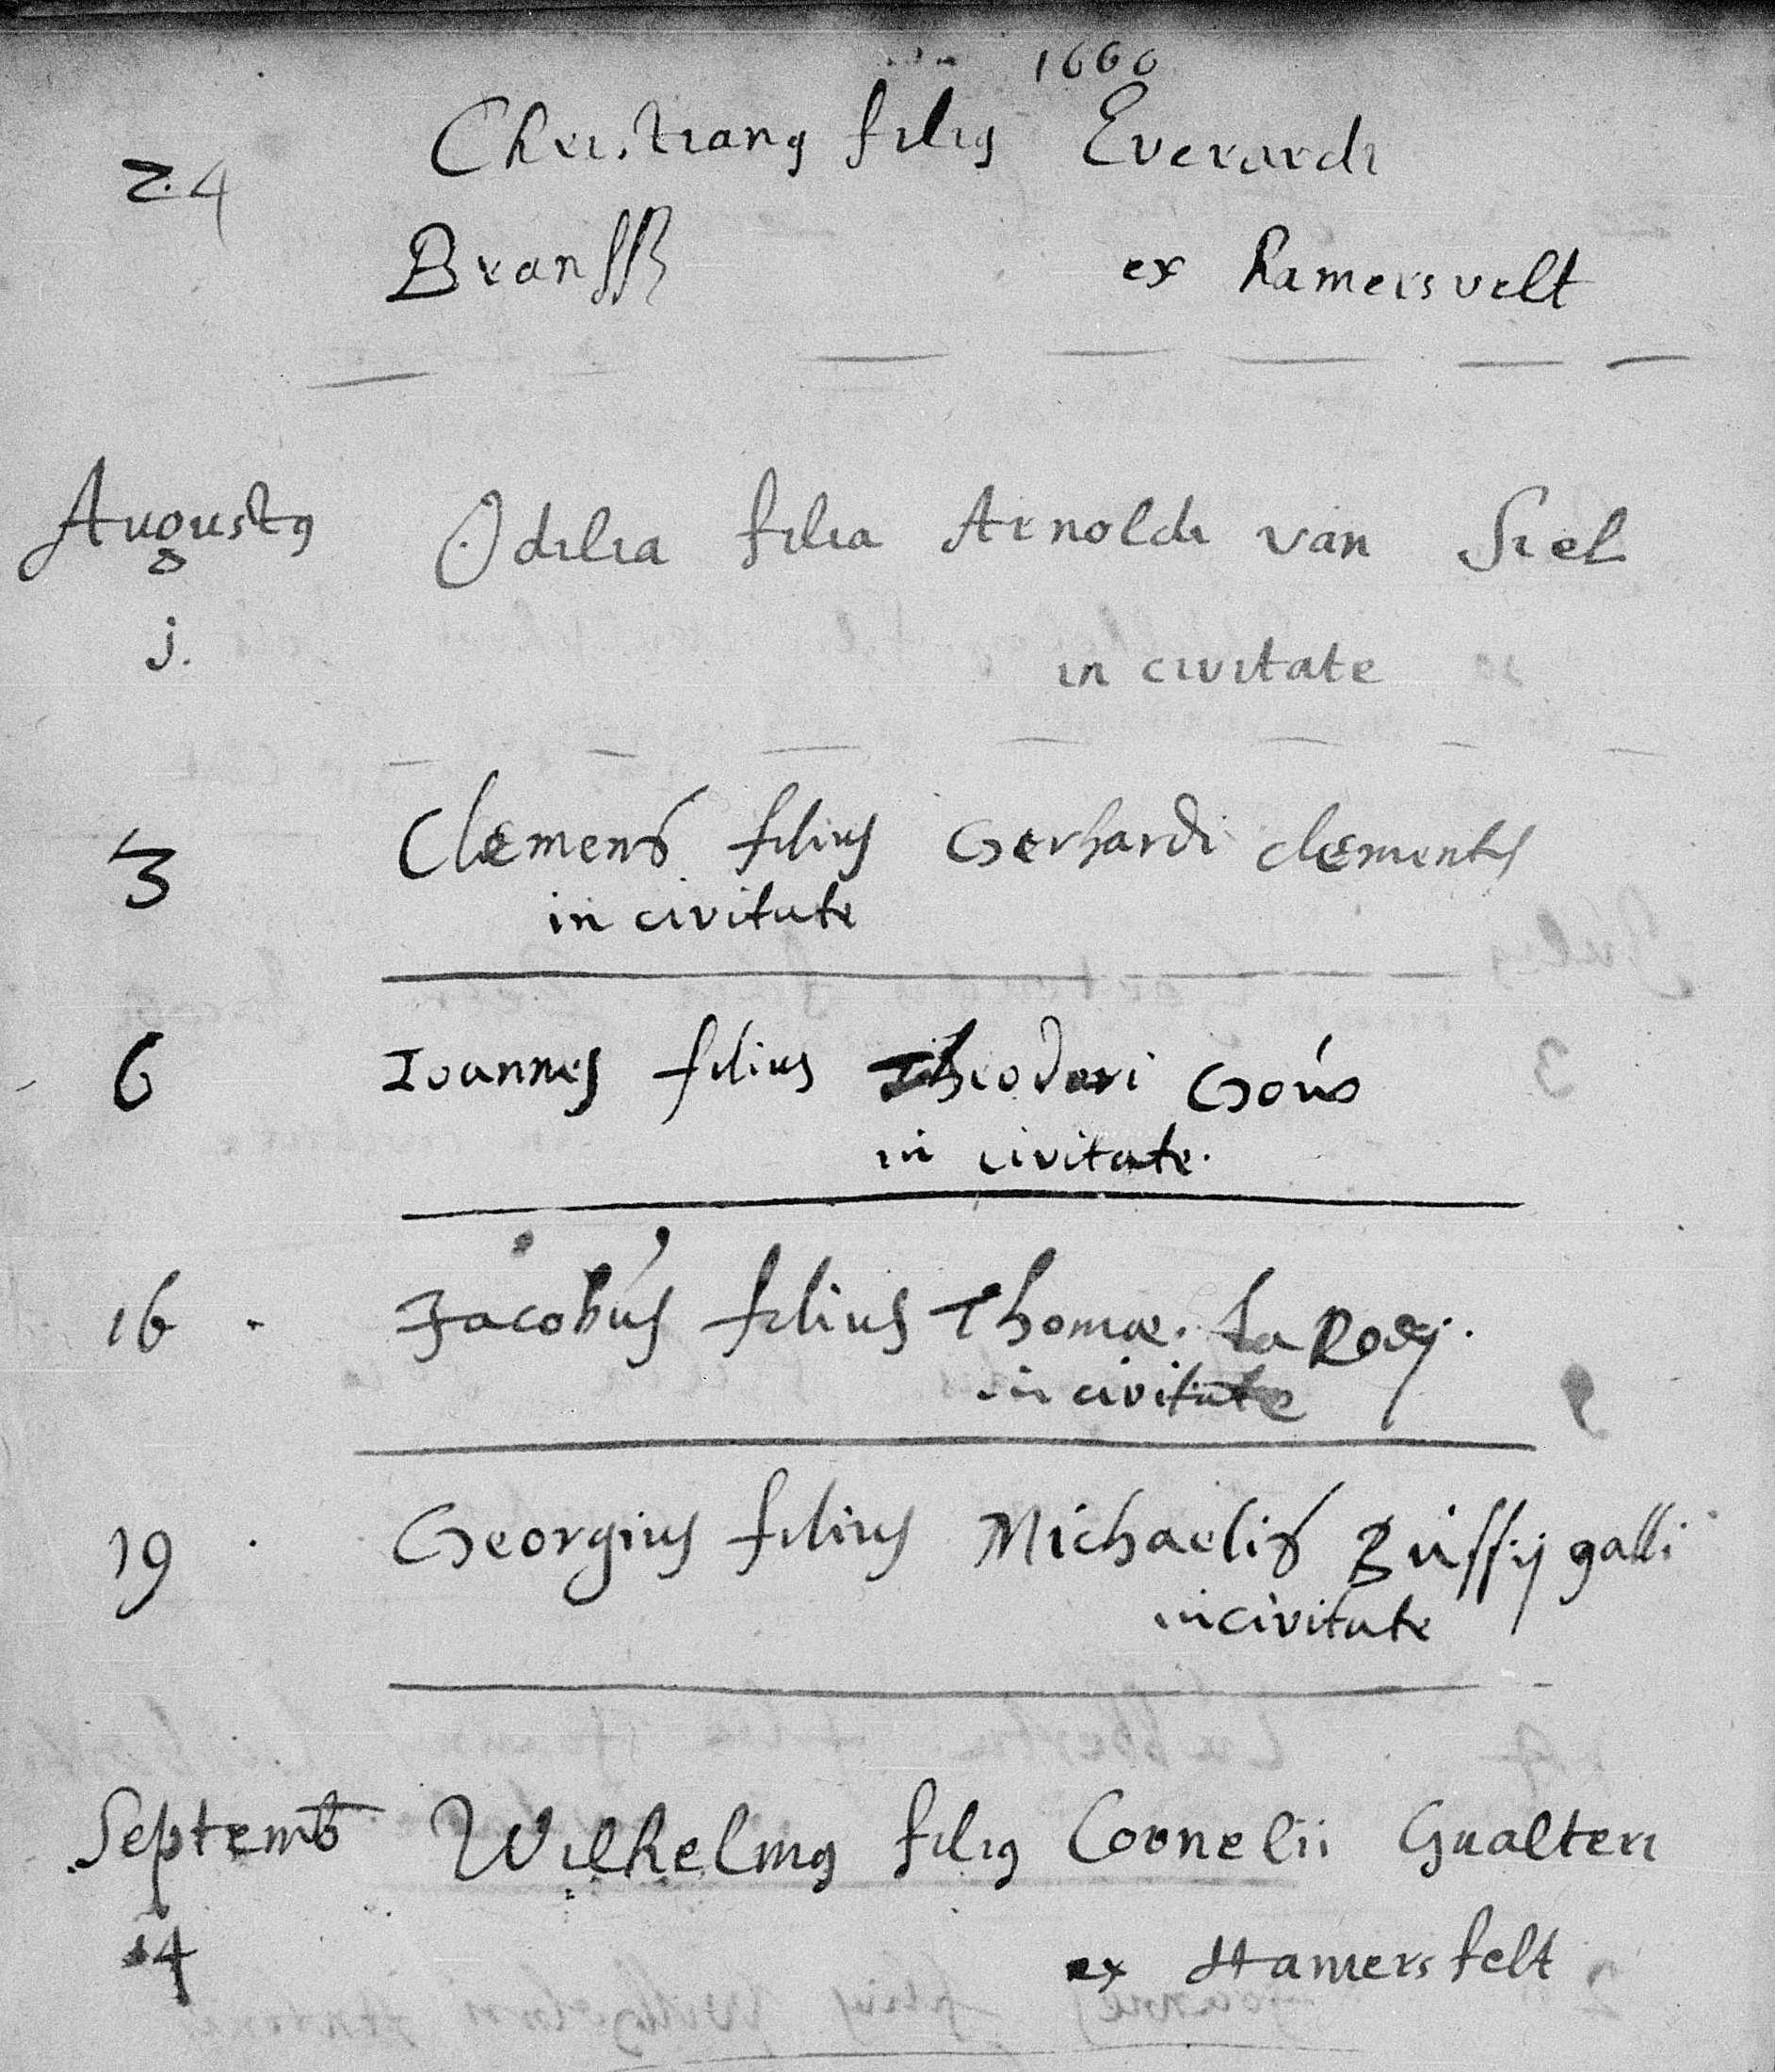 1666
24 Christianus filius Everardi
ex hamersvelt
Augustus Odilia filia Arnoldi van Siel
j.
in civitate
3 Clemens filius Gerhardi clementis
in civitate
6 Ioannes filius Theodori Goús
in civitate.
16 Jacobús filius Thomæ. La Roÿ.
in civitate
19 Georgius filius Michaelis galli
in civitate
Septemb Wilhelmus filius Cornelii Gualteri
14 ex Hamersfelt